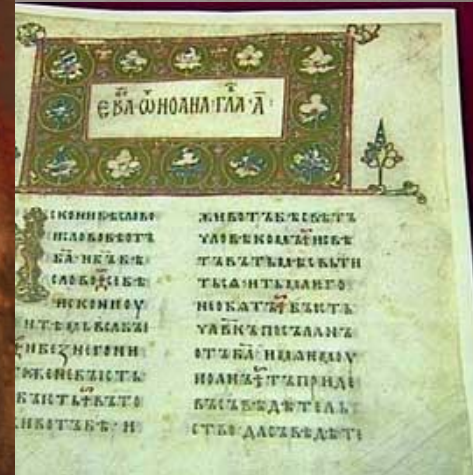 ЕВА · Ѿ ИОАНА · ГЛА · А҃ ·
ИСКОНИ БѢ СЛОВО
И СЛОВО БѢ ОТЪ
Б҃А И Б҃Ъ БѢ
СЛОВО СЕ БѢ
ИСКОНИ ОУ
НИ БЕЗ НЕГО НИ
ЖЕ НЕ БЫСТЬ
БЫСТЬ ВЪ ТО
ЖИВОТЪ БѢ И
ЖИВОТЪ БѢ СВѢТЪ
ЧЛОВѢКОМЪ И СВѢ
ТЪ ВЪ ТЬМѢ СВЬТИ
ТЬСѦ И ТЬМА ѤГО
НЕ ОБѦТЪ БЫСТЬ
ЧЛ҃ВКЪ ПОСЪЛАНЪ
ОТЪ Б҃А ИМѦ ѤМОУ
ИОАНЪ ТЪ ПРИДЕ
ВЪ СЪВѢДѢТЕЛЬ
СТВО ДА СЪВѢДѢТЕ